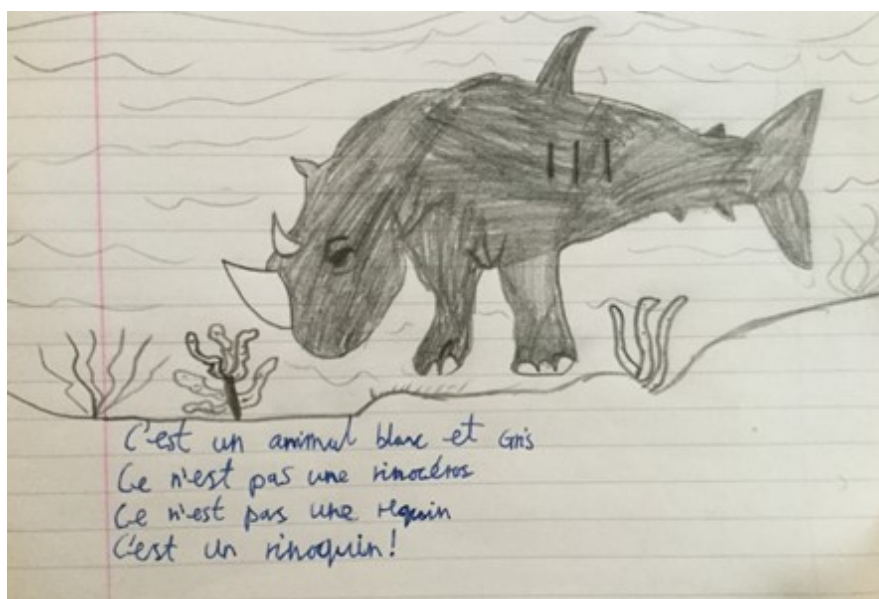 C'est un animal blanc et Gris
Ce n'est pas une rinocéros
Ce n'est pas une requin
C'est un rinoquin!